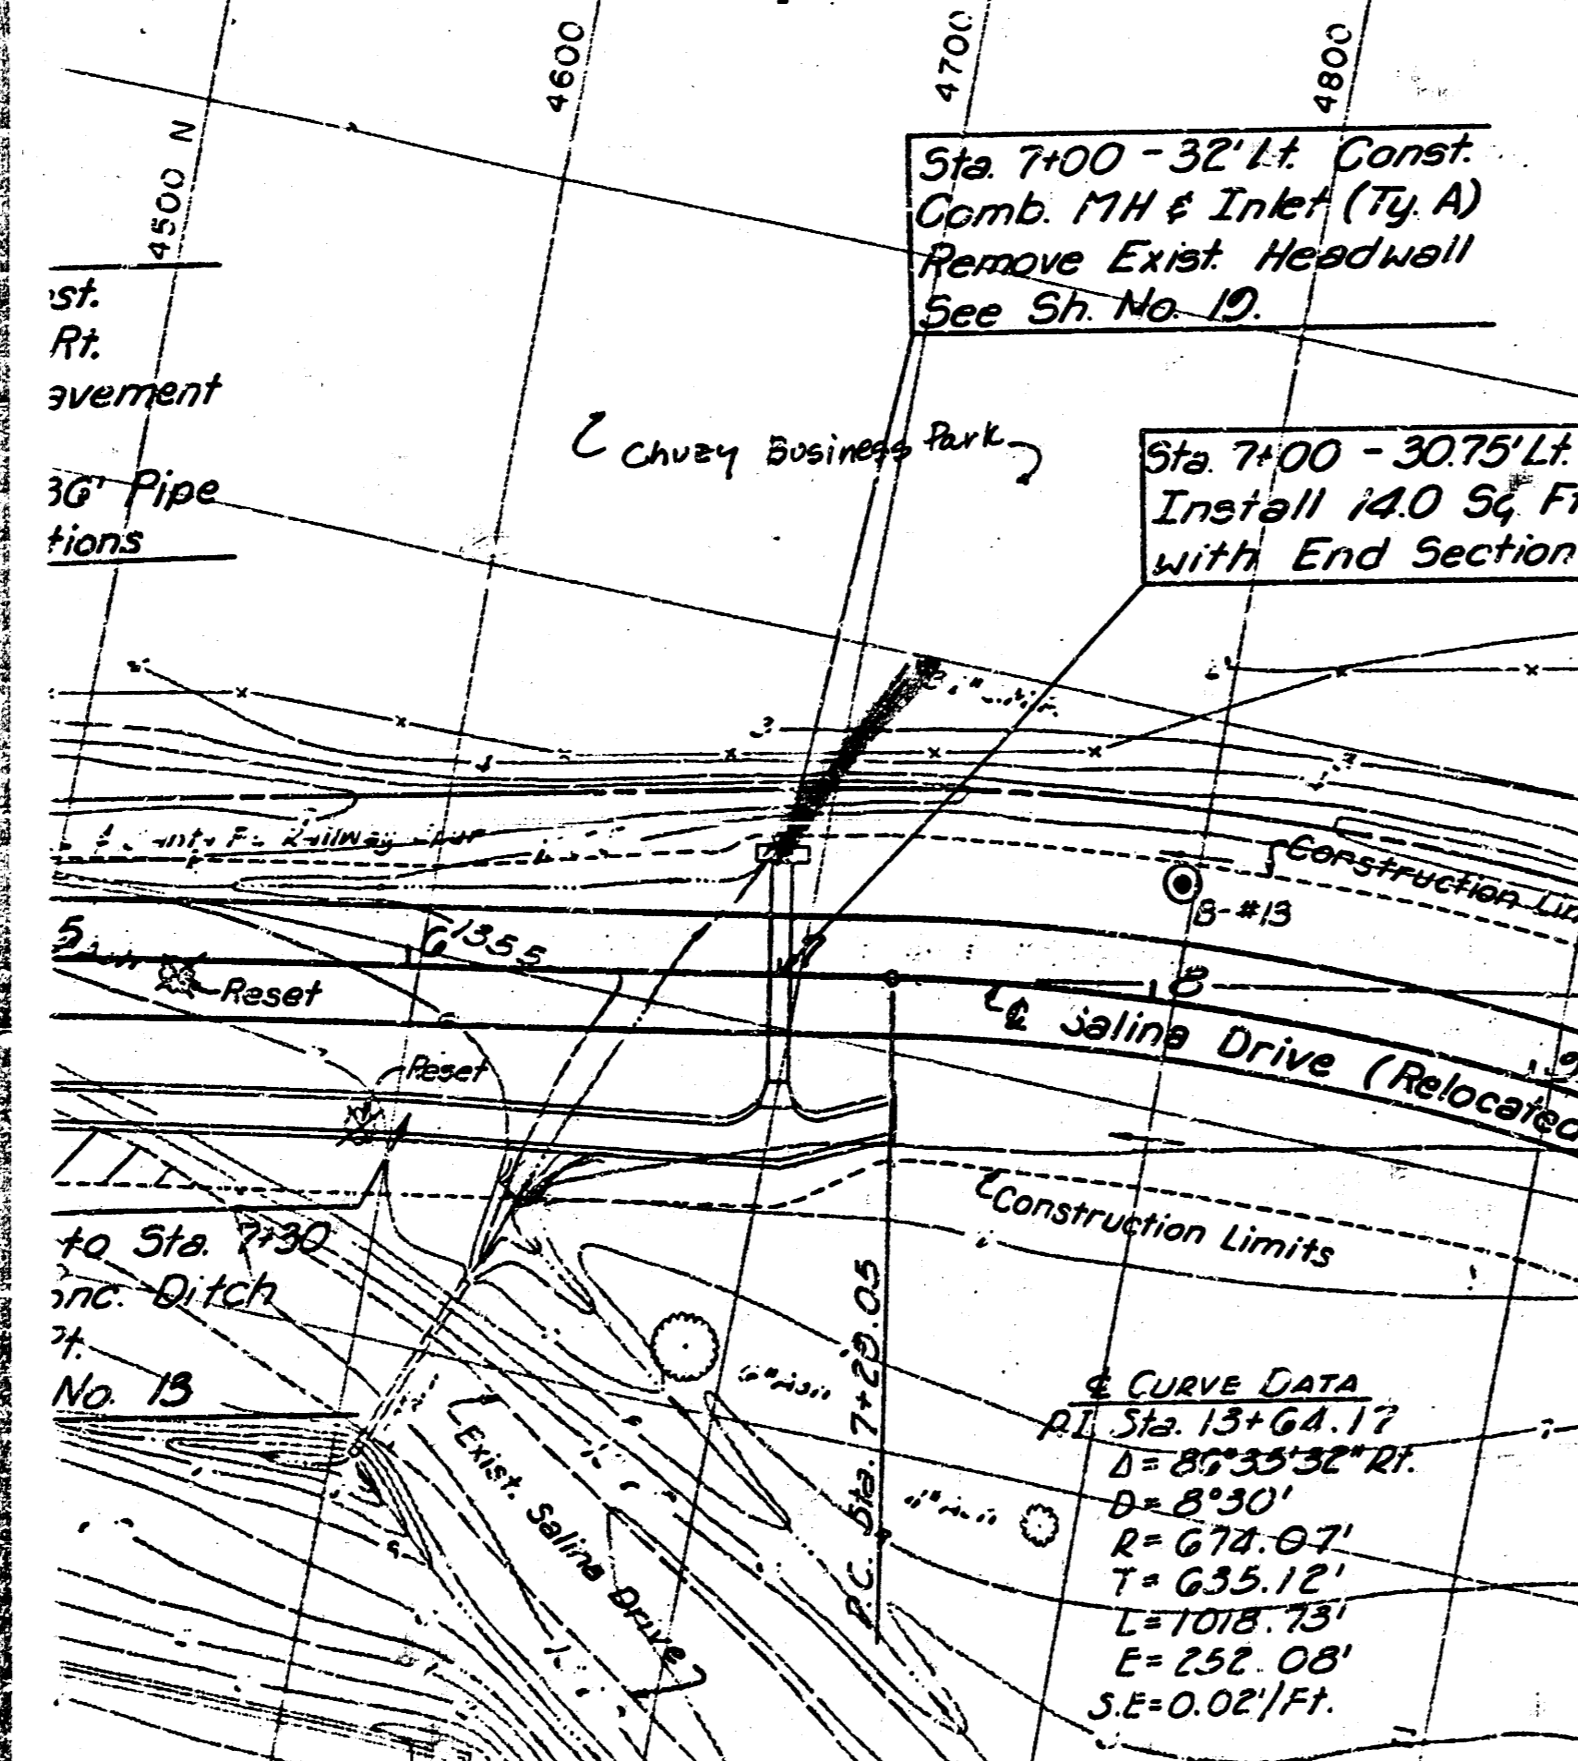 4500 N
4600
4700
4800
Sta. 7+00 - 32' Lt. Const.
Comb. MH & Inlet (Ty. A)
Remove Exist. Headwall
See Sh. No. 19.
st.
Rt.
avement
36' Pipe
tions
Chuzy Business Park
Sta. 7+00 - 30.75' Lt.
Install 14.0 Sq Ft
with End Section
Railway
Construction Li
B-#13
5
6
7
8
9
Reset
Reset
℄ Salina Drive (Relocated
Construction Limits
to Sta. 7+30
onc. Ditch
No. 13
Exist. Salina Drive
P.C. Sta. 7+29.05
℄ CURVE DATA
P.I. Sta. 13+64.17
Δ= 86°35'32" Rt.
D= 8°30'
R= 674.07'
T= 635.12'
L= 1018.73'
E= 252.08'
S.E=0.02'/Ft.